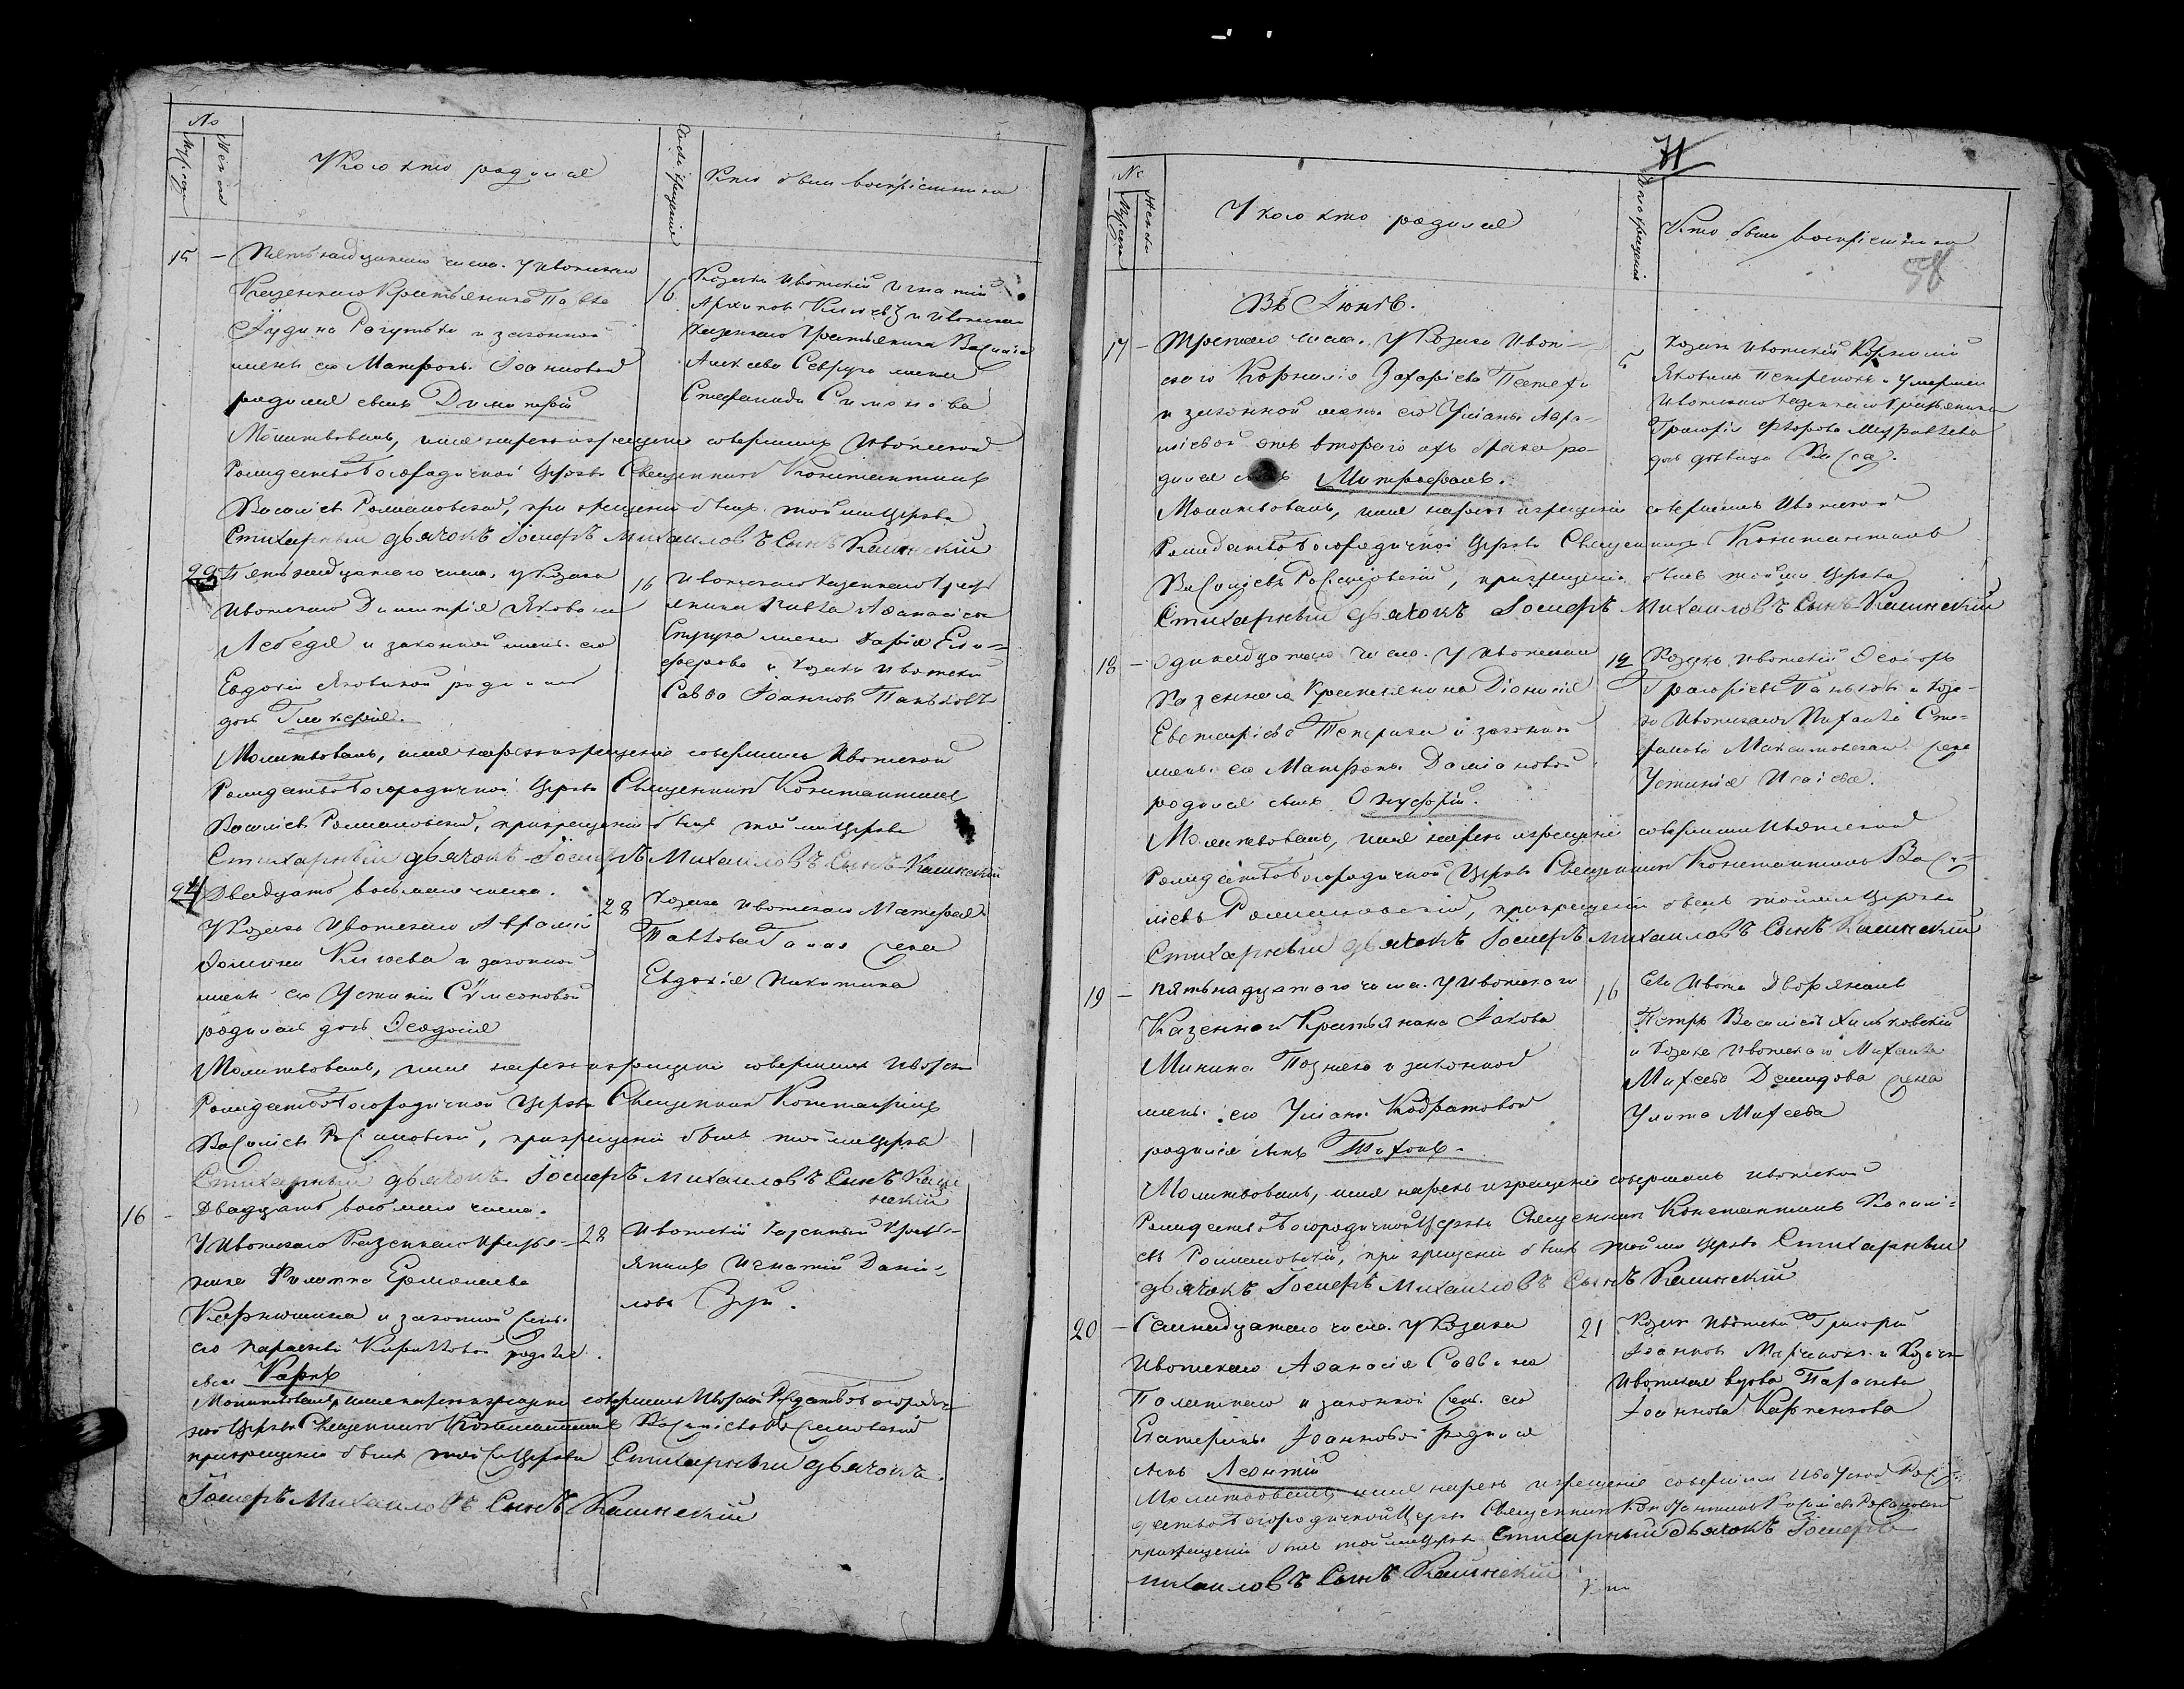 No
Мужеска
Женска
У кого кто родился
Число крещенія
Кто были воспріемники
15 — Пятьнадцатаго числа. У Ивотскаго
Казеннаго Крестьянина Павла
Іудина и законной
жены его Матроны Іоанновой
родился сынъ Димитрій
16 Козакъ Ивотскій Игнатій
Архиповъ и Ивотскаго
Казеннаго Крестьянина Василія
Алексѣева Севрука жена
Стефанида Симонова
Молитвовалъ, имя нарекъ и крещеніе совершилъ Ивотской
Рождество Богородичной Церкви Священникъ Константинъ
Василіевъ Романовскій, при крещеніи былъ той же Церкви
Стихарный дьячокъ Іосифъ Михаиловъ Сынъ Кашинскій
Пятьнадцатаго числа. У Козака
Ивотскаго Димитрія Яковлева
Лебедя и законной жены его
Евдокіи Яковлевой родилась
дочь Гликерія.
16 Ивотскаго Казеннаго Крест
янина Павла Афанасіева
жена Дарія Ели-
ферова и Козакъ Ивотскій
Савва Іоанновъ Паньковъ
Молитвовалъ, имя нарекъ и крещеніе совершилъ Ивотской
Рождество Богородичной Церкви Священникъ Константинъ
Василіевъ Романовскій, при крещеніи былъ той же Церкви
Стихарный дьячокъ Іосифъ Михаиловъ Сынъ Кашинскій
24 Двадцать восьмаго числа.
У Козака Ивотскаго Аврамія
Фомина Князева и законной
жены его Устиніи Сѵмеоновой
родилась дочь Феодосія
28 Козака Ивотскаго Матфея
Павлова жена
Евдокія Никитина
Молитвовалъ, имя нарекъ и крещеніе совершилъ Ивотской
Рождество Богородичной Церкви Священникъ Константинъ
Василіевъ Романовскій, при крещеніи былъ той же Церкви
Стихарный дьячокъ Іосифъ Михаиловъ Сынъ Каши
нскій
16 — Двадцать восьмаго числа.
У Ивотскаго Казеннаго Крестья-
нина Филиппа Ермолаева
и законной жены
его Параскевы Кирилловой родился
сынъ Карпъ
28 Ивотскій Казенный Кресть-
янинъ Игнатій Дани-
ловъ Зуй.
Молитвовалъ, имя нарекъ и крещеніе совершилъ Ивотской Рождество Богородич-
ной Церкви Священникъ Константинъ Василіевъ Романовскій
при крещеніи былъ той же Церкви Стихарный дьячокъ
Іосифъ Михаиловъ Сынъ Кашинскій
71
58
No
Мужеска
Женска
У кого кто родился
Число крещенія
Кто были воспріемники
Въ Іюнѣ.
17 — Третьяго числа. У Козака Ивот-
скаго Корнилія Захаріева
и законной жены его Уліаны Авра-
міевой отъ втораго ихъ брака ро-
дился сынъ Митрофанъ.
5 Козакъ Ивотскій Корнилій
Яковлевъ Петренокъ и умершаго
Ивотскаго Казеннаго Крестьянина
Григорія Федорова Муравлева
дочь дѣвица Васса.
Молитвовалъ, имя нарекъ и крещеніе совершилъ Ивотской
Рождество Богородичной Церкви Священникъ Константинъ
Василіевъ Романовскій, при крещеніи былъ той же Церкви
Стихарный дьячокъ Іосифъ Михаиловъ Сынъ Кашинскій
18 — Одинадцатаго числа. У Ивотскаго
Казеннаго Крестьянина Діонисія
Евстафіева и законной
жены его Матроны Даміановой
родился сынъ Онуфрій.
12 Козакъ Ивотскій Феодоръ
Григоріевъ Паньковъ и Коза-
ка Ивотскаго Михаила Сте-
фанова жена
Устинія Исаіева.
Молитвовалъ, имя нарекъ и крещеніе совершилъ Ивотской
Рождество Богородичной Церкви Священникъ Константинъ Васи-
ліевъ Романовскій, при крещеніи былъ той же Церкви
Стихарный дьячокъ Іосифъ Михаиловъ Сынъ Кашинскій
19 — Пятьнадцатаго числа. У Ивотскаго
Казеннаго Крестьянина Іакова
Минина и законной
жены его Уліаны Кодратовой
родился сынъ Тихонъ.
16 Села Ивота Дворянинъ
Петръ Василіевъ
и Козака Ивотскаго Михаила
Михеева Демидова жена
Улита Михеева
Молитвовалъ, имя нарекъ и крещеніе совершилъ Ивотской
Рождество Богородичной Церкви Священникъ Константинъ Василі-
евъ Романовскій, при крещеніи былъ той же Церкви Стихарный
дьячокъ Іосифъ Михаиловъ Сынъ Кашинскій
20 — Семнадцатаго числа. У Козака
Ивотскаго Афанасія Саввина
и законной жены его
Екатерины Іоанновой родился
сынъ Леонтій
21 Козакъ Ивотскій Григорій
Іоанновъ и Козачка
Ивотская вдова Параскева
Іоаннова Карпенкова
Молитвовалъ, имя нарекъ и крещеніе совершилъ Ивотской Рож-
дество Богородичной Церкви Священникъ Константинъ Василіевъ Романовскій
при крещеніи былъ той же Церкви Стихарный дьячокъ Іосифъ
Михаиловъ Сынъ Кашинскій